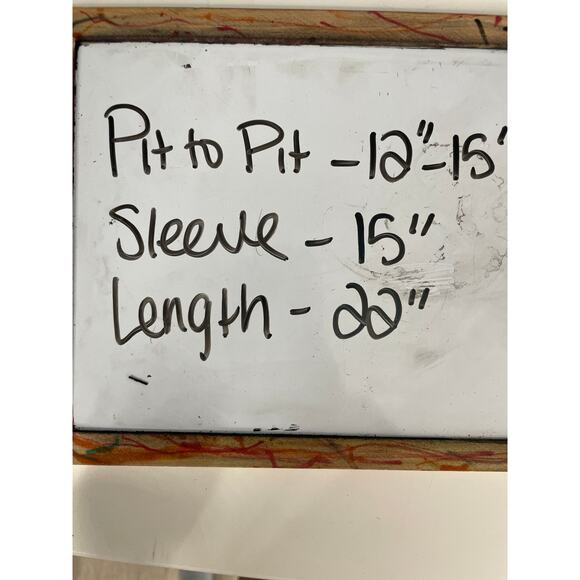 Pit to Pit - 12"-15"
Sleeve - 15"
Length - 22"